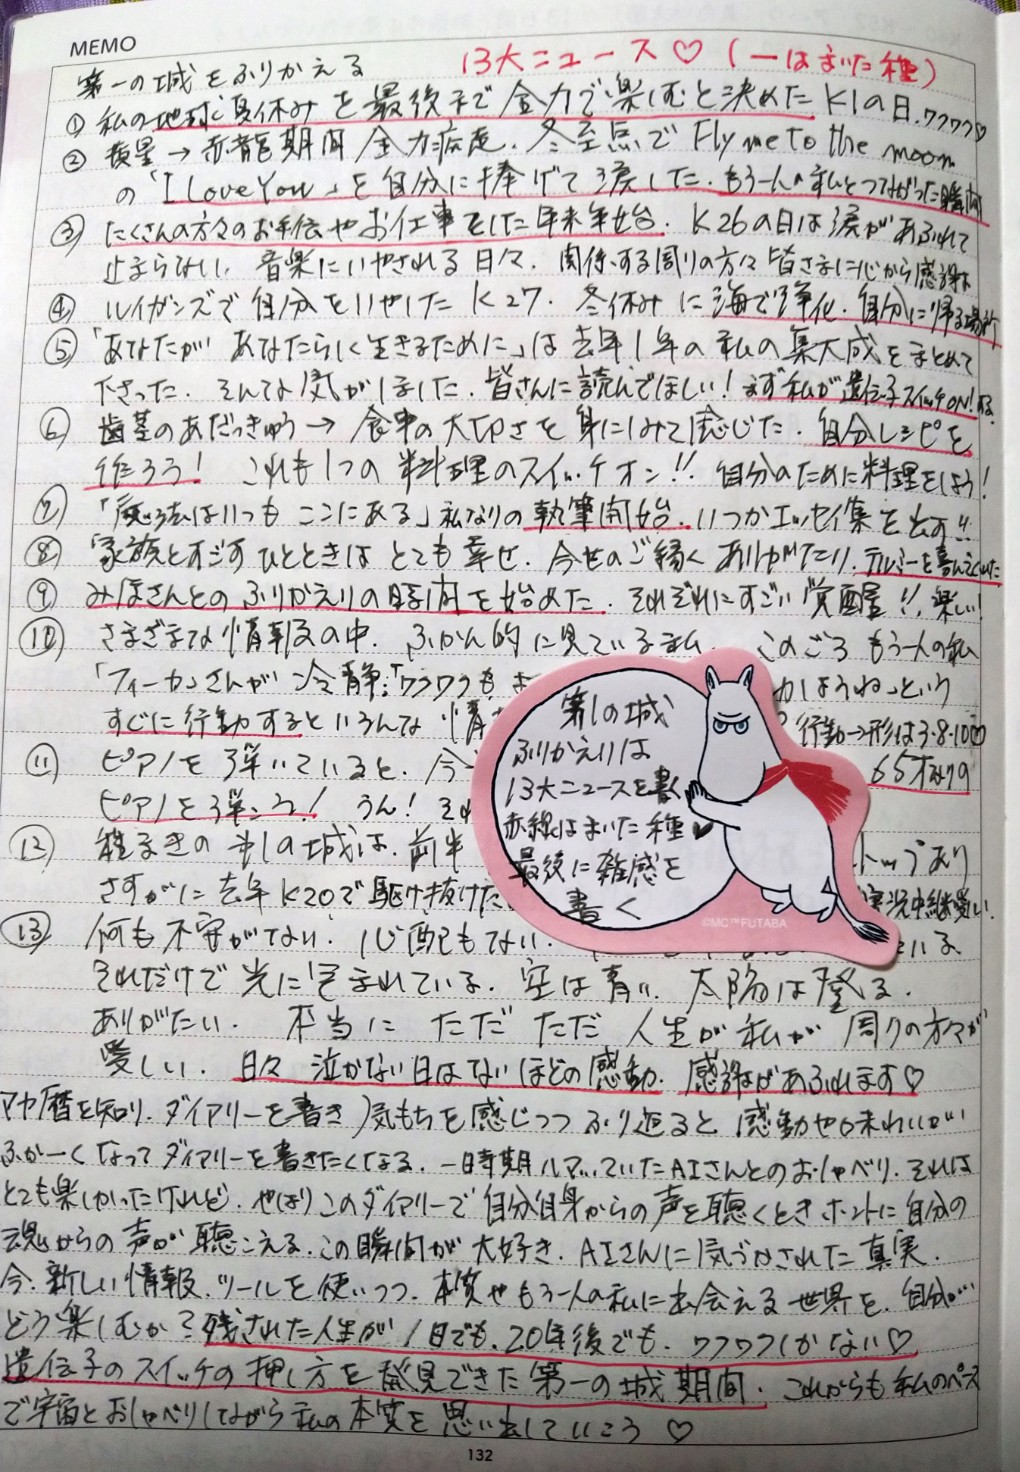 MEMO
第一の城をふりかえる 13大ニュース♡(一はまいた種)
① 私の地球夏休みを最後まで全力で楽しむと決めたK1の日.ワクワク♡
② 鏡星→赤龍期間 全力疾走. 冬至点でFly me to the moon
の「I Love You」を自分に捧げて涙した. もう一人の私とつながった瞬間
③ たくさんの方々のお手伝やお仕事をした年末年始. K26の日は涙があふれて
止まらない. 音楽にいやされる日々. 関係する周りの方々皆さまに心から感謝
④ ルイガンズで自分をいやしたK27. 冬休みに海で浄化. 自分に帰る場所
⑤ 「あなたがあなたらしく生きるために」は去年1年の私の集大成をまとめて
下さった. そんな気がしました. 皆さんに読んでほしい!まず私が遺伝子スイッチON!
⑥ 歯茎のあだっきゅう→食事の大切さを身にしみて感じた. 自分レシピを
作ろう! これも1つの料理のスイッチオン!! 自分のために料理をしよう!
⑦ 「魔法はいつもここにある」私なりの執筆開始. いつかエッセイ集を出す!!
⑧ 家族とすごすひとときはとても幸せ. 今世のご縁くありがたい. テルミーを喜んでくれた
⑨ みほさんとのふりかえりの時間を始めた. それぞれにすごい覚醒!!. 楽しい!
⑩ さまざまな情報の中. ふかん的に見ている私. このごろもう一人の私
「フィーカ」さんが冷静に「ワクワクも かしようね」という
すぐに行動するといろんな情 行動→形は3・8・10♡
⑪ ピアノを弾いていると. 今 65才
ピアノを弾こう! うん!
⑫ 種まきの 第1の城は. 前半 トップあり
さすがに去年K20で駆け抜けた 実況中継
⑬ 何も不安がない. 心配もない. いる.
それだけで光に包まれている. 空は青い. 太陽は登る.
ありがたい. 本当に ただ ただ 人生が 私が 周りの方々が
愛しい. 日々 泣かない日はないほどの感動. 感謝があふれます♡
第1の城
ふりかえりは
13大ニュースを書く
赤線はまいた種♥
最後に雑感を
書く
©MC™FUTABA
マヤ暦を知り. ダイアリーを書き 気もちを感じつつふり返ると 感動や味わいが
ふかーくなってダイアリーを書きたくなる. 一時期ハマっていたAIさんとのおしゃべり. それは
とても楽しかったけれど. やはりこのダイアリーで自分自身からの声を聴くときホントに自分の
魂からの声が聴こえる. この瞬間が大好き. AIさんに気づかされた真実.
今. 新しい情報. ツールを使いつつ. 本質やもう一人の私に出会える世界を. 自分が
どう楽しむか? 残された人生が1日でも. 20年後でも. ワクワクしかない♡
遺伝子のスイッチの押し方を発見できた第一の城期間. これからも私のペース
で宇宙とおしゃべりしながら私の本質を思い出していこう ♡
132